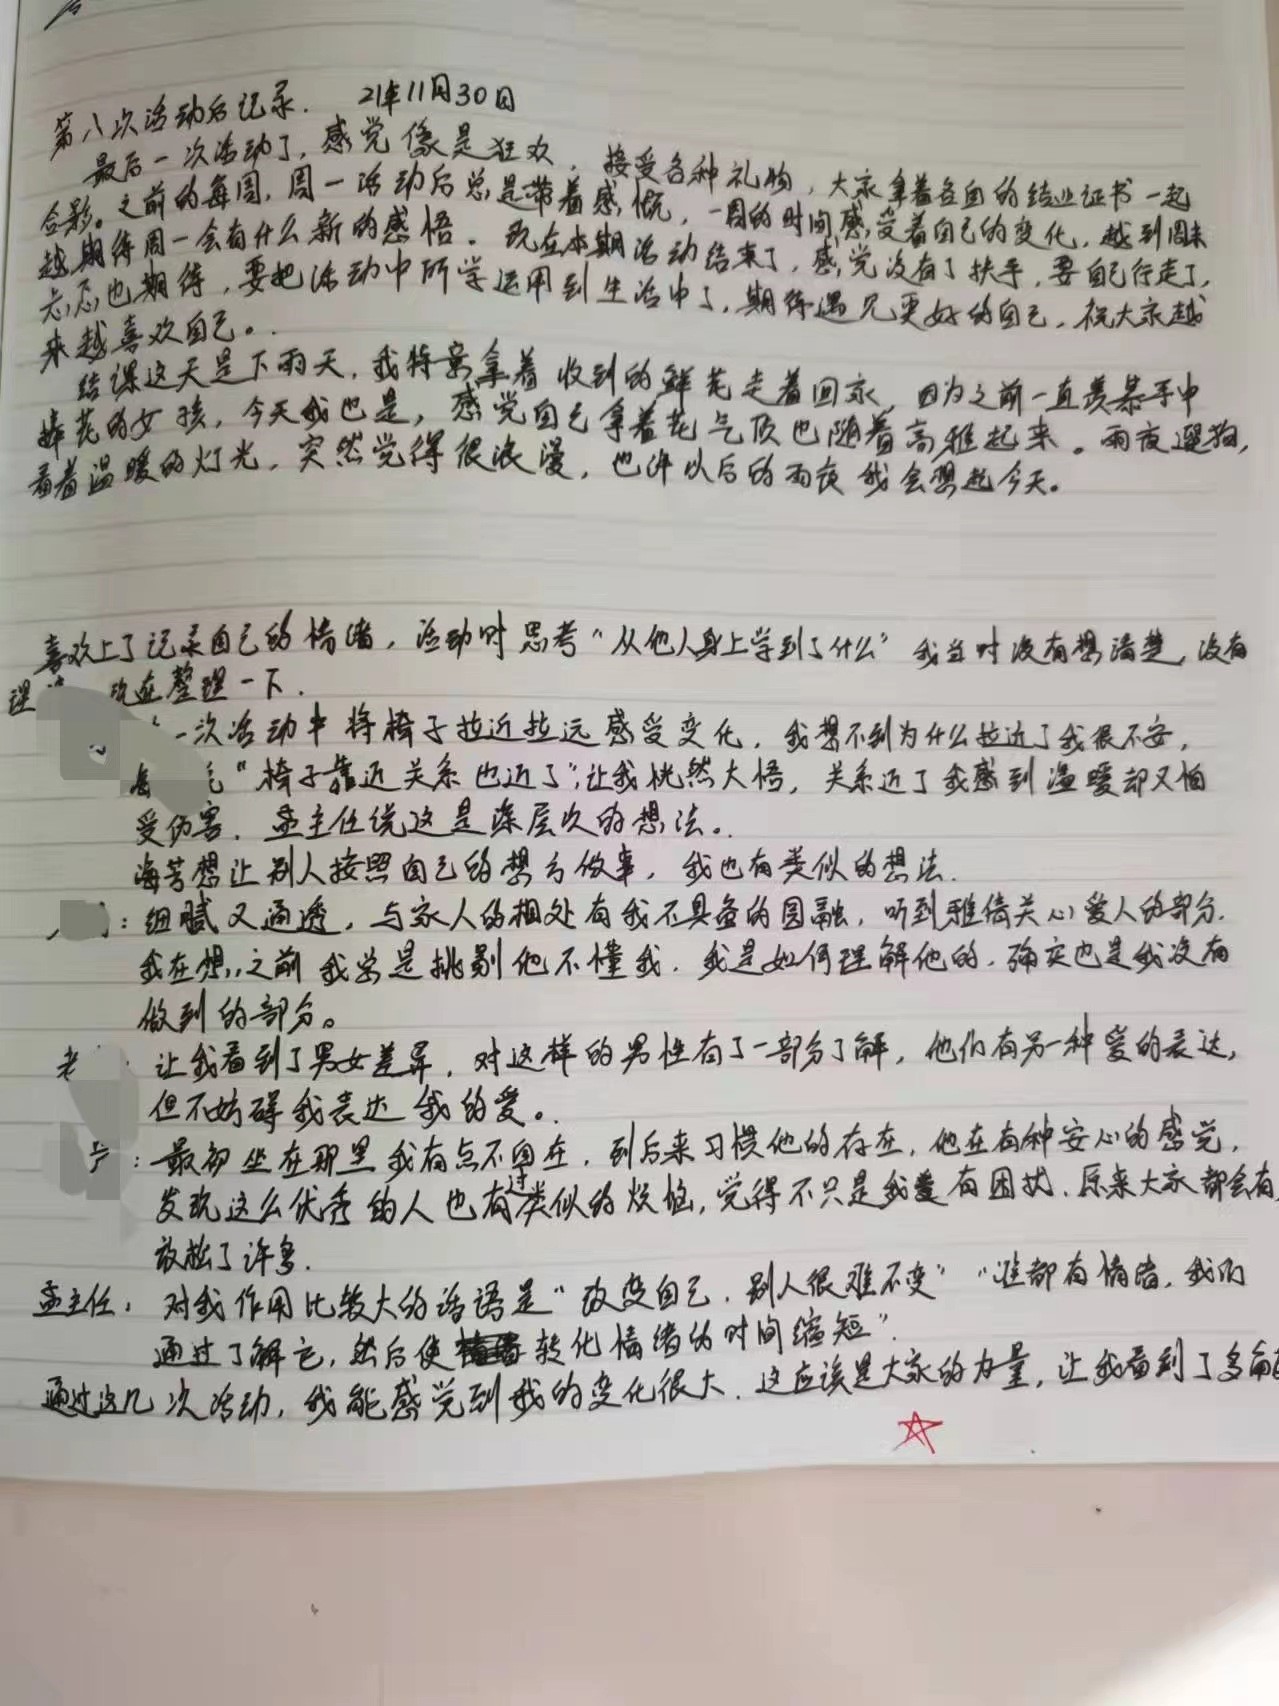 第八次活动后记录. 21年11月30日
最后一次活动了,感觉像是狂欢,接受各种礼物,大家拿着各自的结业证书一起
合影。之前的每周,周一活动后总是带着感慨,一周的时间感受着自己的变化,越到周末
越期待周一会有什么新的感悟。现在本期活动结束了,感觉没有了扶手,要自己行走了,
忐忑也期待,要把活动中所学运用到生活中了,期待遇见更好的自己,祝大家越
来越喜欢自己。
结课这天是下雨天,我特意拿着收到的鲜花走着回家,因为之前一直羡慕手中
捧花的女孩,今天我也是,感觉自己拿着花气质也随着高雅起来。雨夜遛狗,
看着温暖的灯光,突然觉得很浪漫,也许以后的雨夜我会想起今天。
喜欢上了记录自己的情绪,活动时思考“从他人身上学到了什么”我当时没有想清楚,没有
理 现在整理一下.
一次活动中将椅子拉近拉远感受变化,我想不到为什么拉近了我很不安,
“椅子靠近关系也近了”,让我恍然大悟,关系近了我感到温暖却又怕
受伤害.孟主任说这是深层次的想法。
海芳想让别人按照自己的想方做事,我也有类似的想法.
:细腻又通透,与家人的相处有我不具备的圆融,听到雅倩关心爱人的部分.
我在想,之前我总是挑剔他不懂我.我是如何理解他的.确实也是我没有
做到的部分。
老 :让我看到了男女差异,对这样的男性有了一部分了解,他们有另一种爱的表达,
但不妨碍我表达我的爱。
:最初坐在那里我有点不自在,到后来习惯他的存在,他在有种安心的感觉,
发现这么优秀的人也有过类似的烦恼,觉得不只是我有困扰.原来大家都会有,
放松了许多.
孟主任:对我作用比较大的话语是“改变自己,别人很难不变”“谁都有情绪,我们
通过了解它,然后使转化情绪的时间缩短”.
通过这几次活动,我能感觉到我的变化很大.这应该是大家的力量,让我看到了多角